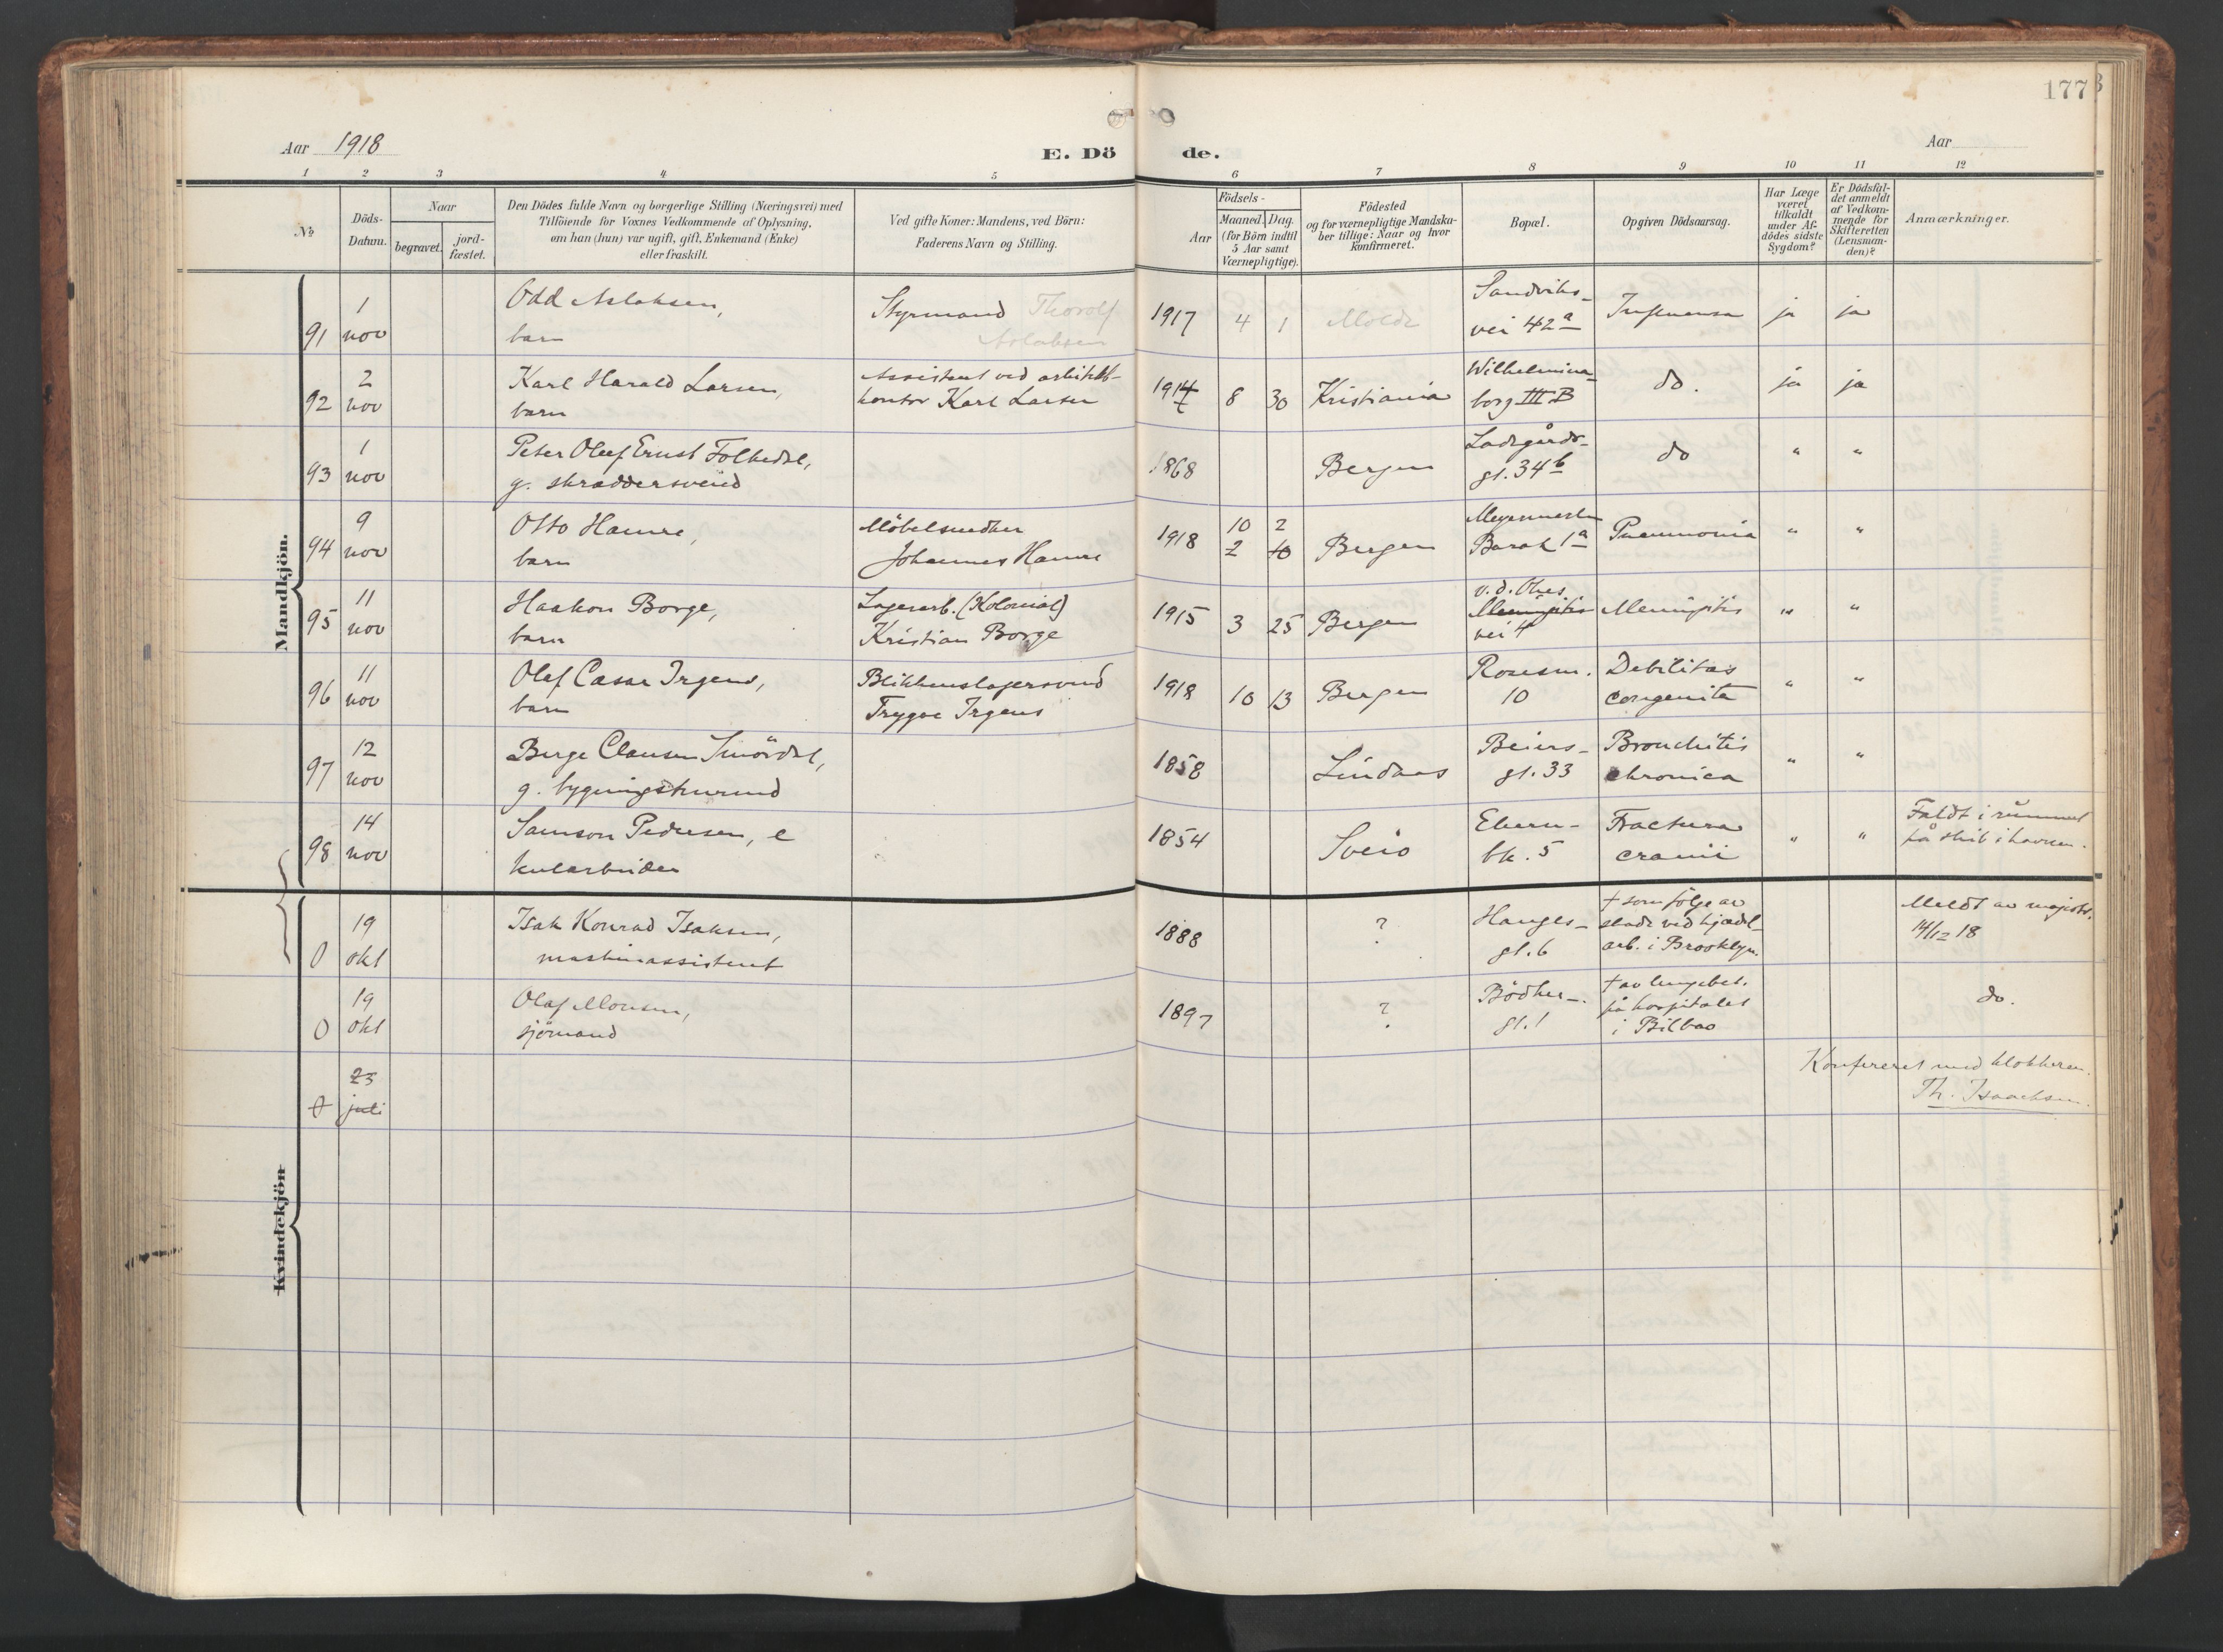 177
Aar 1918
E. Döde.
Aar
1 2 3 4 5 6 7 8 9 10 11 12
No
Döds-
Datum.
Naar
begravet.
jord-
fæstet.
Den Dödes fulde Navn og borgerlige Stilling (Næringsvei) med
Tilföiende for Voxnes Vedkommende af Oplysning,
om han (hun) var ugift, gift, Enkemand (Enke)
eller fraskilt.
Ved gifte Koner: Mandens, ved Börn:
Faderens Navn og Stilling.
Födsels-
Aar
Maaned. Dag.
(for Börn indtil
5 Aar samt
Værnepligtige).
Födested
og for værnepligtige Mandska-
ber tillige: Naar og hvor
konfirmeret.
Bopæl.
Opgiven Dödsaarsag.
Har Læge
været
tilkaldt
under Af-
dödes sidste
Sygdom?
Er Dödsfal-
det anmeldt
af Vedkom-
mende for
Skifteretten
(Lensman-
den)?
Anmærkninger.
Mandkjön.
91 1 nov
Odd Aslaksen,
barn
Styrmand Thorolf
Aslaksen
1917 4 1 Molde
Sandviks-
vei 42a
Influensa ja ja
92 2 nov
Karl Harald Larsen,
barn
Assistent ved arkitekt-
kontor Karl Larsen
1914 8 30 Kristiania
Wilhelmina-
borg III B
do. ja ja
93 1 nov
Peter Oluf Ernst Folkedal,
g. skræddersvend
1868 Bergen
Ladegårds-
gt. 34b
do " "
94 9 nov
Otto Hamre,
barn
Möbelsnedker
Johannes Hamre
1918 10 2
2 10
Bergen
Barak 1a
Pneumonia " "
95 11 nov
Haakon Borge,
barn
Lagerarb. (Kolonial)
Kristian Borge
1915 3 25 Bergen
v. d.
Meningitis
vei 4
Meningitis " "
96 11 nov
Olaf Cæsar Irgens,
barn
Blikkenslagersvend
Trygve Irgens
1918 10 13 Bergen
Rosesm.
10
Debilitas
congenita " "
97 12 nov
Berge Clausen Smördal,
g. bygningssnekker
1858 Lindaas
Beiers-
gt. 33
Bronchitis
chronica " "
98 14 nov
Samson Pedersen, e
kularbeider
1854 Sveio
bk. 5
Fractura
cranii " "
Faldt i rummet
på skib i havnen.
0 19 okt
Isak Konrad Isaksen,
maskinassistent
1888 ?
Hauges-
gt. 6
+ som fölge av
skade ved kjedel-
arb. i Brooklyn.
Meldt av magistr.
14/12 18
0 19 okt
Olaf Monsen,
sjömand
1897 ?
Bödker-
gt. 1
+ av lungebet.
på hospitalet
i Bilbao
do.
0 23 juli
Konfereret med klokkeren.
Th. Isaachsen.
Kvindekjön